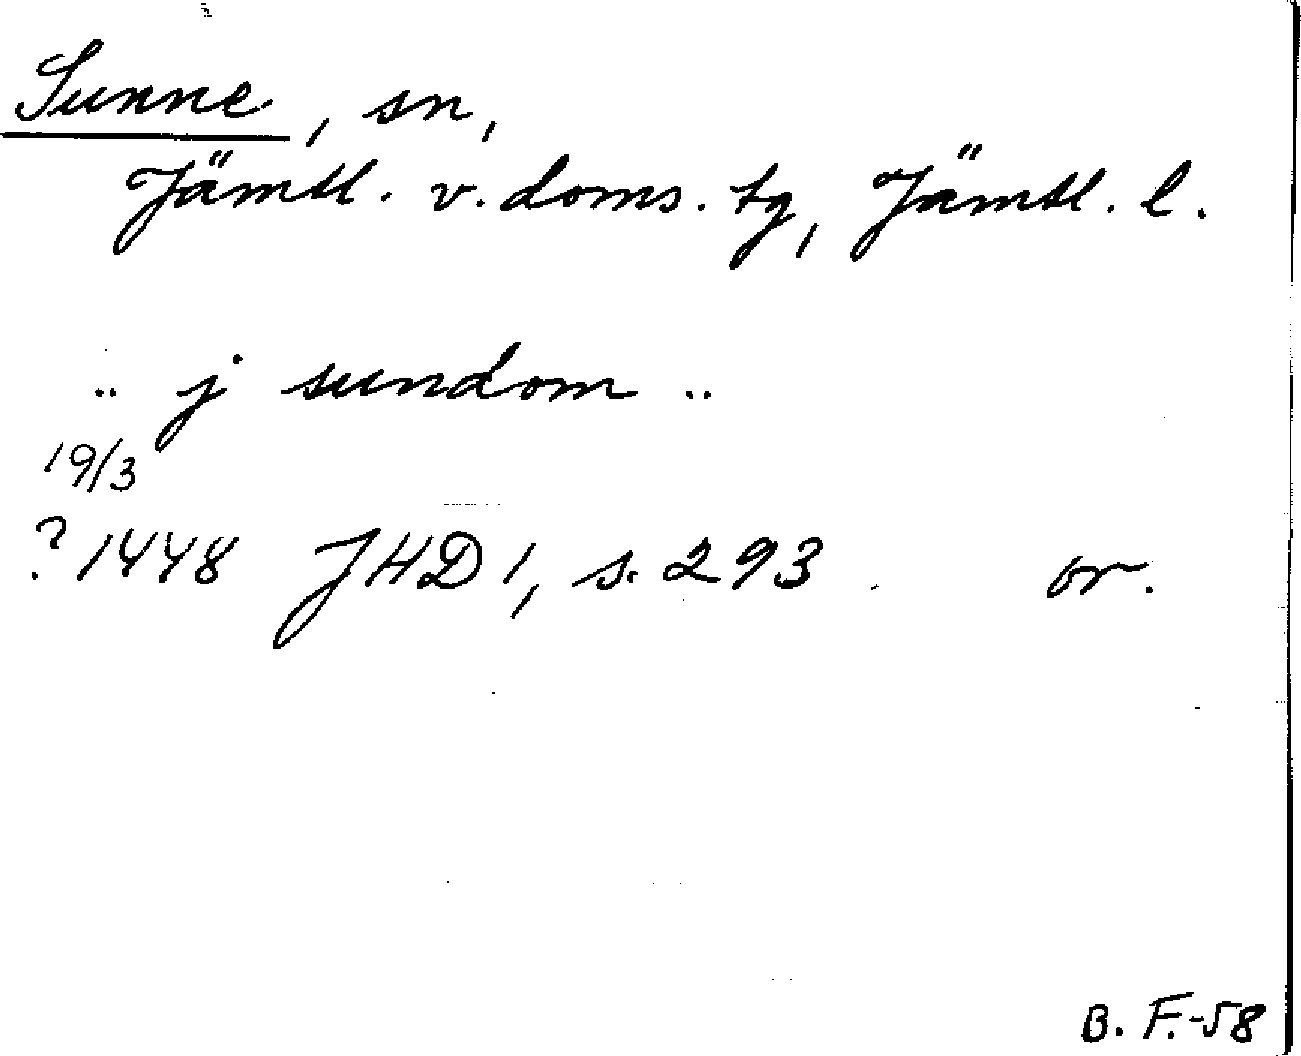 Sunne, sn,
Jämtl. v. doms. tg, Jämtl. l.
.. j sundom ..
19/3
? 1448 JHD 1, s. 293 or.
B. F.-58